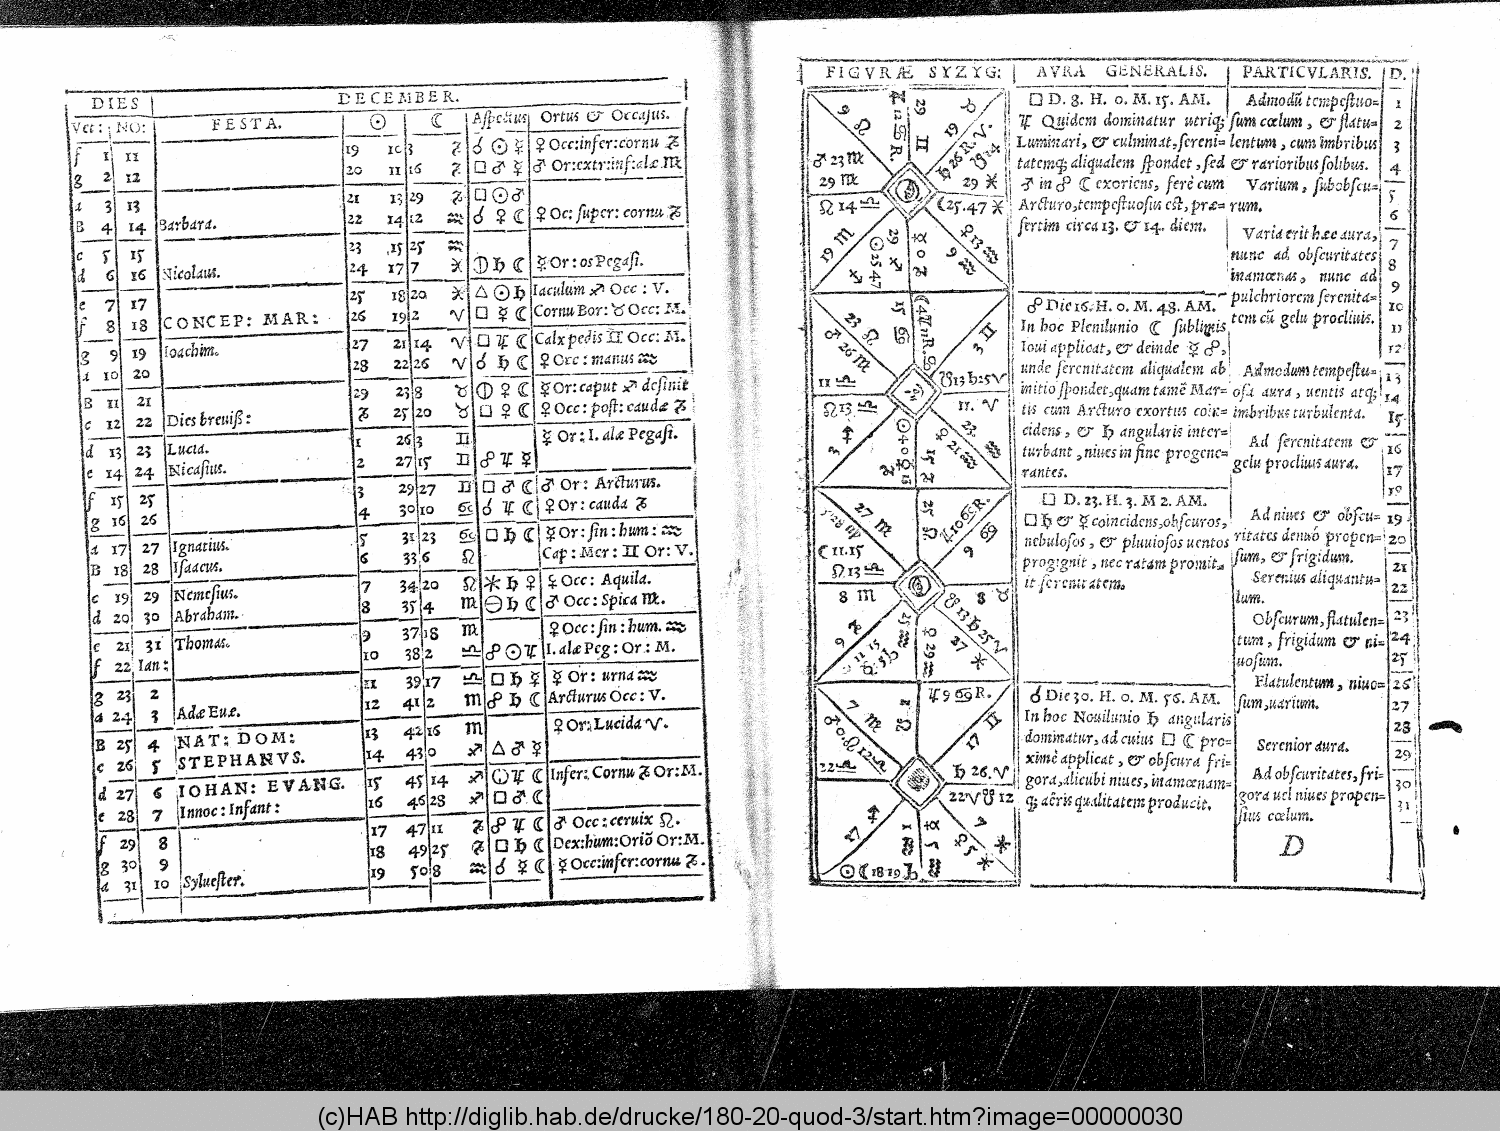 DIES DECEMBER.
Vet: NO: FESTA. ☉ ☾ Aspectus Ortus & Occasus.
f 1 11 19 10 3 ♑ ☌ ☉ ☿ ♀ Occ:infer:cornu ♑
g 2 12 20 11 16 ♑ □ ♂ ☿ ♂ Or:extr:inf:alæ ♍
a 3 13 21 13 29 ♑ □ ☉ ♂
B 4 14 Barbara. 22 14 12 ♒ ☌ ♀ ☾ ♀ Oc: super: cornu ♑
c 5 15 23 15 25 ♒
d 6 16 Nicolaus. 24 17 7 ♓ ♄ ☾ ☿ Or: os Pegasi.
e 7 17 25 18 20 ♓ △ ☉ ♄ Iaculum ♐ Occ: V.
f 8 18 CONCEP: MAR: 26 19 2 ♈ □ ☿ ☾ Cornu Bor: ♉ Occ: M.
g 9 19 Ioachim. 27 21 14 ♈ □ ♃ ☾ Calx pedis ♊ Occ: M.
a 10 20 28 22 26 ♈ ☌ ♄ ☾ ♀ Occ: manus ♒
B 11 21 29 23 8 ♉ ♀ ☾ ☿ Or: caput ♐ desinit
c 12 22 Dies breuiss: ♑ 25 20 ♉ □ ♀ ☾ ♀ Occ: post: caudæ ♑
d 13 23 Lucia. 1 26 3 ♊ ☿ Or: I. alæ Pegasi.
e 14 24 Nicasius. 2 27 15 ♊ ☍ ♃ ☿
f 15 25 3 29 27 ♊ □ ♂ ☾ ♂ Or: Arcturus.
g 16 26 4 30 10 ♋ ☌ ♃ ☾ ♀ Or: cauda ♑
a 17 27 Ignatius. 5 31 23 ♋ □ ♄ ☾ ☿ Or: sin: hum: ♒
B 18 28 Isaacus. 6 33 6 ♌ Cap: Mer: ♊ Or: V.
c 19 29 Nemesius. 7 34 20 ♌ ⚹ ♄ ♀ ☿ Occ: Aquila.
d 20 30 Abraham. 8 35 4 ♍ ♄ ☾ ♂ Occ: Spica ♍.
e 21 31 Thomas. 9 37 18 ♍ ♀ Occ: sin: hum. ♒
f 22 Ian: 10 38 2 ♎ ☍ ☉ ♃ I. alæ Peg: Or: M.
g 23 2 11 39 17 ♎ □ ♄ ☿ ☿ Or: urna ♒
a 24 3 Adæ Euæ. 12 41 2 ♏ ☍ ♄ ☾ Arcturus Occ: V.
B 25 4 NAT: DOM: 13 42 16 ♏ ♀ Or: Lucida ♈.
c 26 5 STEPHANVS. 14 43 0 ♐ △ ♂ ☿
d 27 6 IOHAN: EVANG. 15 45 14 ♐ ♃ ☾ Infer: Cornu ♑ Or: M.
e 28 7 Innoc: Infant: 16 46 28 ♐ □ ♂ ☾
f 29 8 17 47 11 ♑ ☍ ♃ ☾ ♂ Occ: ceruix ♌.
g 30 9 18 49 25 ♑ □ ♄ ☾ Dex: hum: Oriõ Or: M.
a 31 10 Syluester. 19 50 8 ♒ ☌ ☿ ☾ ☿ Occ: infer: cornu ♑.
FIGVRÆ SYZYG: AVRA GENERALIS. PARTICVLARIS. D.
□ D. 8. H. 0. M. 15. AM.
♃ Quidem dominatur utriq;
Luminari, & culminat, sereni=
tatemq; aliqualem spondet, sed
♂ in ☍ ☾ exoriens, ferè cum
Arcturo, tempestuosus est, præ=
sertim circa 13. & 14. diem.
☍ Die 16. H. 0. M. 48. AM.
In hoc Plenilunio ☾ sublimis
Ioui applicat, & deinde ☿ ☍,
unde serenitatem aliqualem ab
initio spondet, quam tamẽ Mar=
tis cum Arcturo exortus coin=
cidens, & ♄ angularis inter=
turbant, niues in fine progene=
rantes.
□ D. 23. H. 3. M 2. AM.
□ ♄ & ☿ coincidens, obscuros,
nebulosos, & pluuiosos uentos
progignit, nec ratam promit=
it serenitatem.
☌ Die 30. H. 0. M. 56. AM.
In hoc Nouilunio ♄ angularis
dominatur, ad cuius □ ☾ pro=
ximè applicat, & obscura fri=
gora, alicubi niues, inamœnam=
q; aëris qualitatem producit.
Admodũ tempestuo=
sum cœlum, & flatu=
lentum, cum imbribus
& rarioribus solibus.
Varium, subobscu=
rum.
Varia erit hæc aura,
nunc ad obscuritates
inamœnas, nunc ad
pulchriorem serenita=
tem cũ gelu procliuis.
Admodum tempestu=
osa aura, uentis atq;
imbribus turbulenta.
Ad serenitatem &
gelu procliuis aura.
Ad niues & obscu=
ritates denuò propen=
sum, & frigidum.
Serenius aliquantu=
lum.
Obscurum, flatulen=
tum, frigidum & ni=
uosum.
Flatulentum, niuo=
sum, uarium.
Serenior aura.
Ad obscuritates, fri=
gora uel niues propen=
sius cœlum.
D
1
2
3
4
5
6
7
8
9
10
11
12
13
14
15
16
17
18
19
20
21
22
23
24
25
26
27
28
29
30
31
(c)HAB http://diglib.hab.de/drucke/180-20-quod-3/start.htm?image=00000030